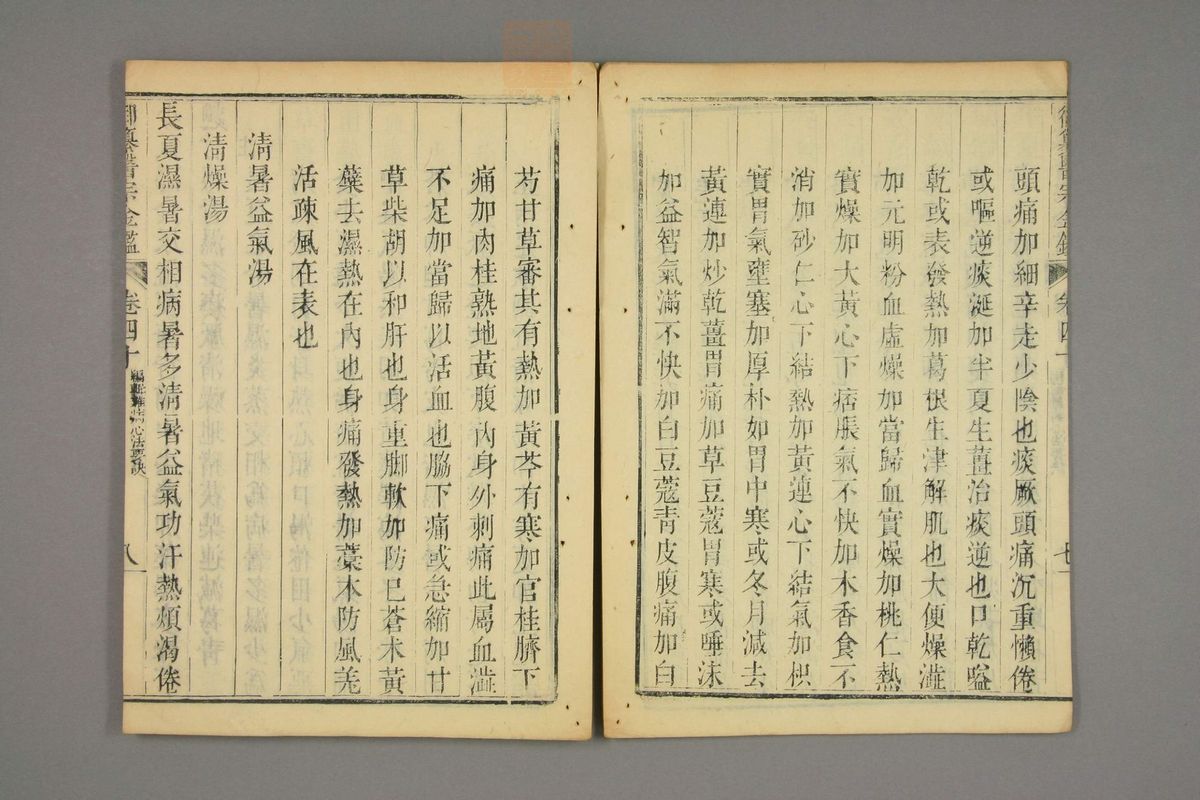 頭痛加細辛走少陰也痰厥頭痛沉重懶倦
或嘔逆痰涎加半夏生薑治痰逆也口乾嗌
乾或表發熱加葛根生津解肌也大便燥澁
加元明粉血虛燥加當歸血實燥加桃仁熱
實燥加大黃心下痞脹氣不快加木香食不
消加砂仁心下結熱加黃連心下結氣加枳
實胃氣壅塞加厚朴如胃中寒或冬月減去
黃連加炒乾薑胃痛加草豆蔻胃寒或唾沫
加益智氣滿不快加白豆蔻靑皮腹痛加白
芍甘草審其有熱加黃芩有寒加官桂臍下
痛加肉桂熟地黃腹內身外刺痛此屬血澁
不足加當歸以活血也脇下痛或急縮加甘
草柴胡以和肝也身重脚軟加防巳蒼朮黃
蘗去濕熱在內也身痛發熱加藁本防風羌
活疎風在表也
淸暑益氣湯
淸燥湯
長夏濕暑交相病暑多淸暑益氣功汗熱煩渴倦
御纂醫宗金鑑 卷四十 編輯雜病心法要訣 八